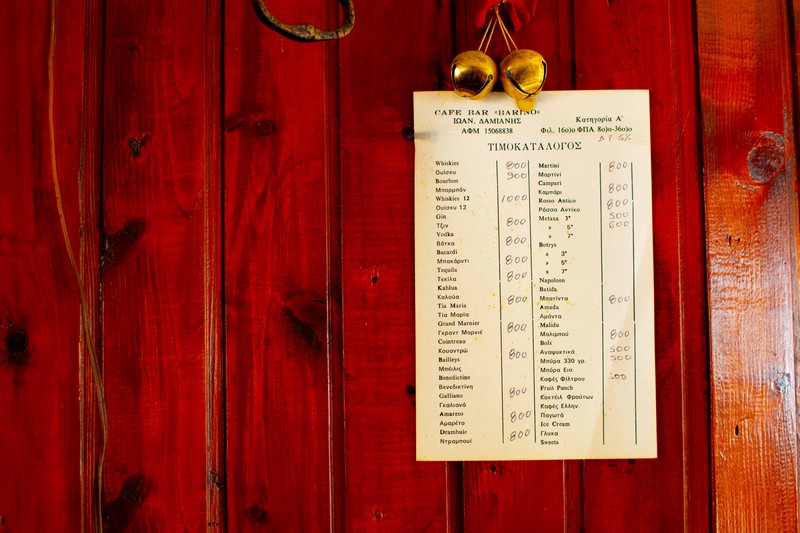 CAFE BAR «BARINO»
ΙΩΑΝ. ΔΑΜΙΑΝΗΣ
Κατηγορία Α΄
ΑΦΜ 15068838
Φιλ. 16ο)ο ΦΠΑ 8ο)ο-36ο)ο
5%
ΤΙΜΟΚΑΤΑΛΟΓΟΣ
Whiskies 800
Ουίσκυ 900
Bourbon
Μπορμπόν
Whiskies 12 1000
Ουίσκυ 12
Gin
Τζιν 800
Vodka
Βότκα 800
Bacardi
Μπακάρντι 800
Tequila
Τεκίλα 800
Kahlua
Καλούα 800
Tia Maria
Τία Μαρία
Grand Marnier 800
Γκραντ Μαρνιέ
Cointreau
Κουαντρώ 800
Baileys
Μπέιλις
Benedictine
Βενεδικτίνη
Galliano 800
Γκαλιανό
Amareto 800
Αμαρέτο
Drambuie 800
Ντραμπουί
Martini 800
Μαρτίνι
Campari
Καμπάρι 800
Rosso Antico 800
Ρόσσο Αντίκο
Metaxa 3* 500
» 5* 600
» 7*
Botrys
» 3*
» 5*
» 7*
Napoleon
Batida
Μπατίντα 800
Amada
Αμάντα
Malidu
Μαλιμπού 800
Bols
Αναψυκτικά 500
Μπύρα 330 γρ. 500
Μπύρα Εισ.
Καφές Φίλτρου 500
Fruit Punch
Κοκτέιλ Φρούτων
Καφές Ελλην.
Παγωτά
Ice Cream
Γλυκα
Sweets